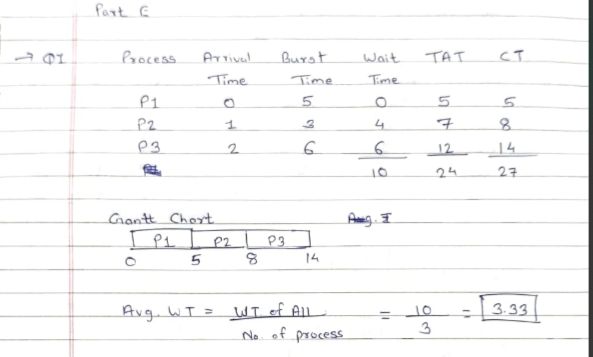 Part E
→ Q1 Process Arrival Time Burst Time Wait Time TAT CT
P1 0 5 0 5 5
P2 1 3 4 7 8
P3 2 6 6 12 14
10 24 27
Gantt Chart Avg.
P1 P2 P3
0 5 8 14
Avg. WT = WT of All / No. of process = 10 / 3 = 3.33